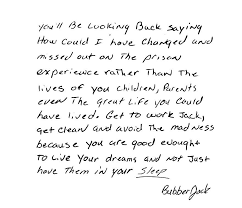 you'll Be Looking Back saying
How could I have changed and
missed out on The prison
experience rather Than The
lives of you children, Parents
even The great Life you could
have lived. Get to work Jack,
get clean and avoid The madness
because you are good enought
to Live your dreams and not Just
have Them in your Sleep
Bubber Jack